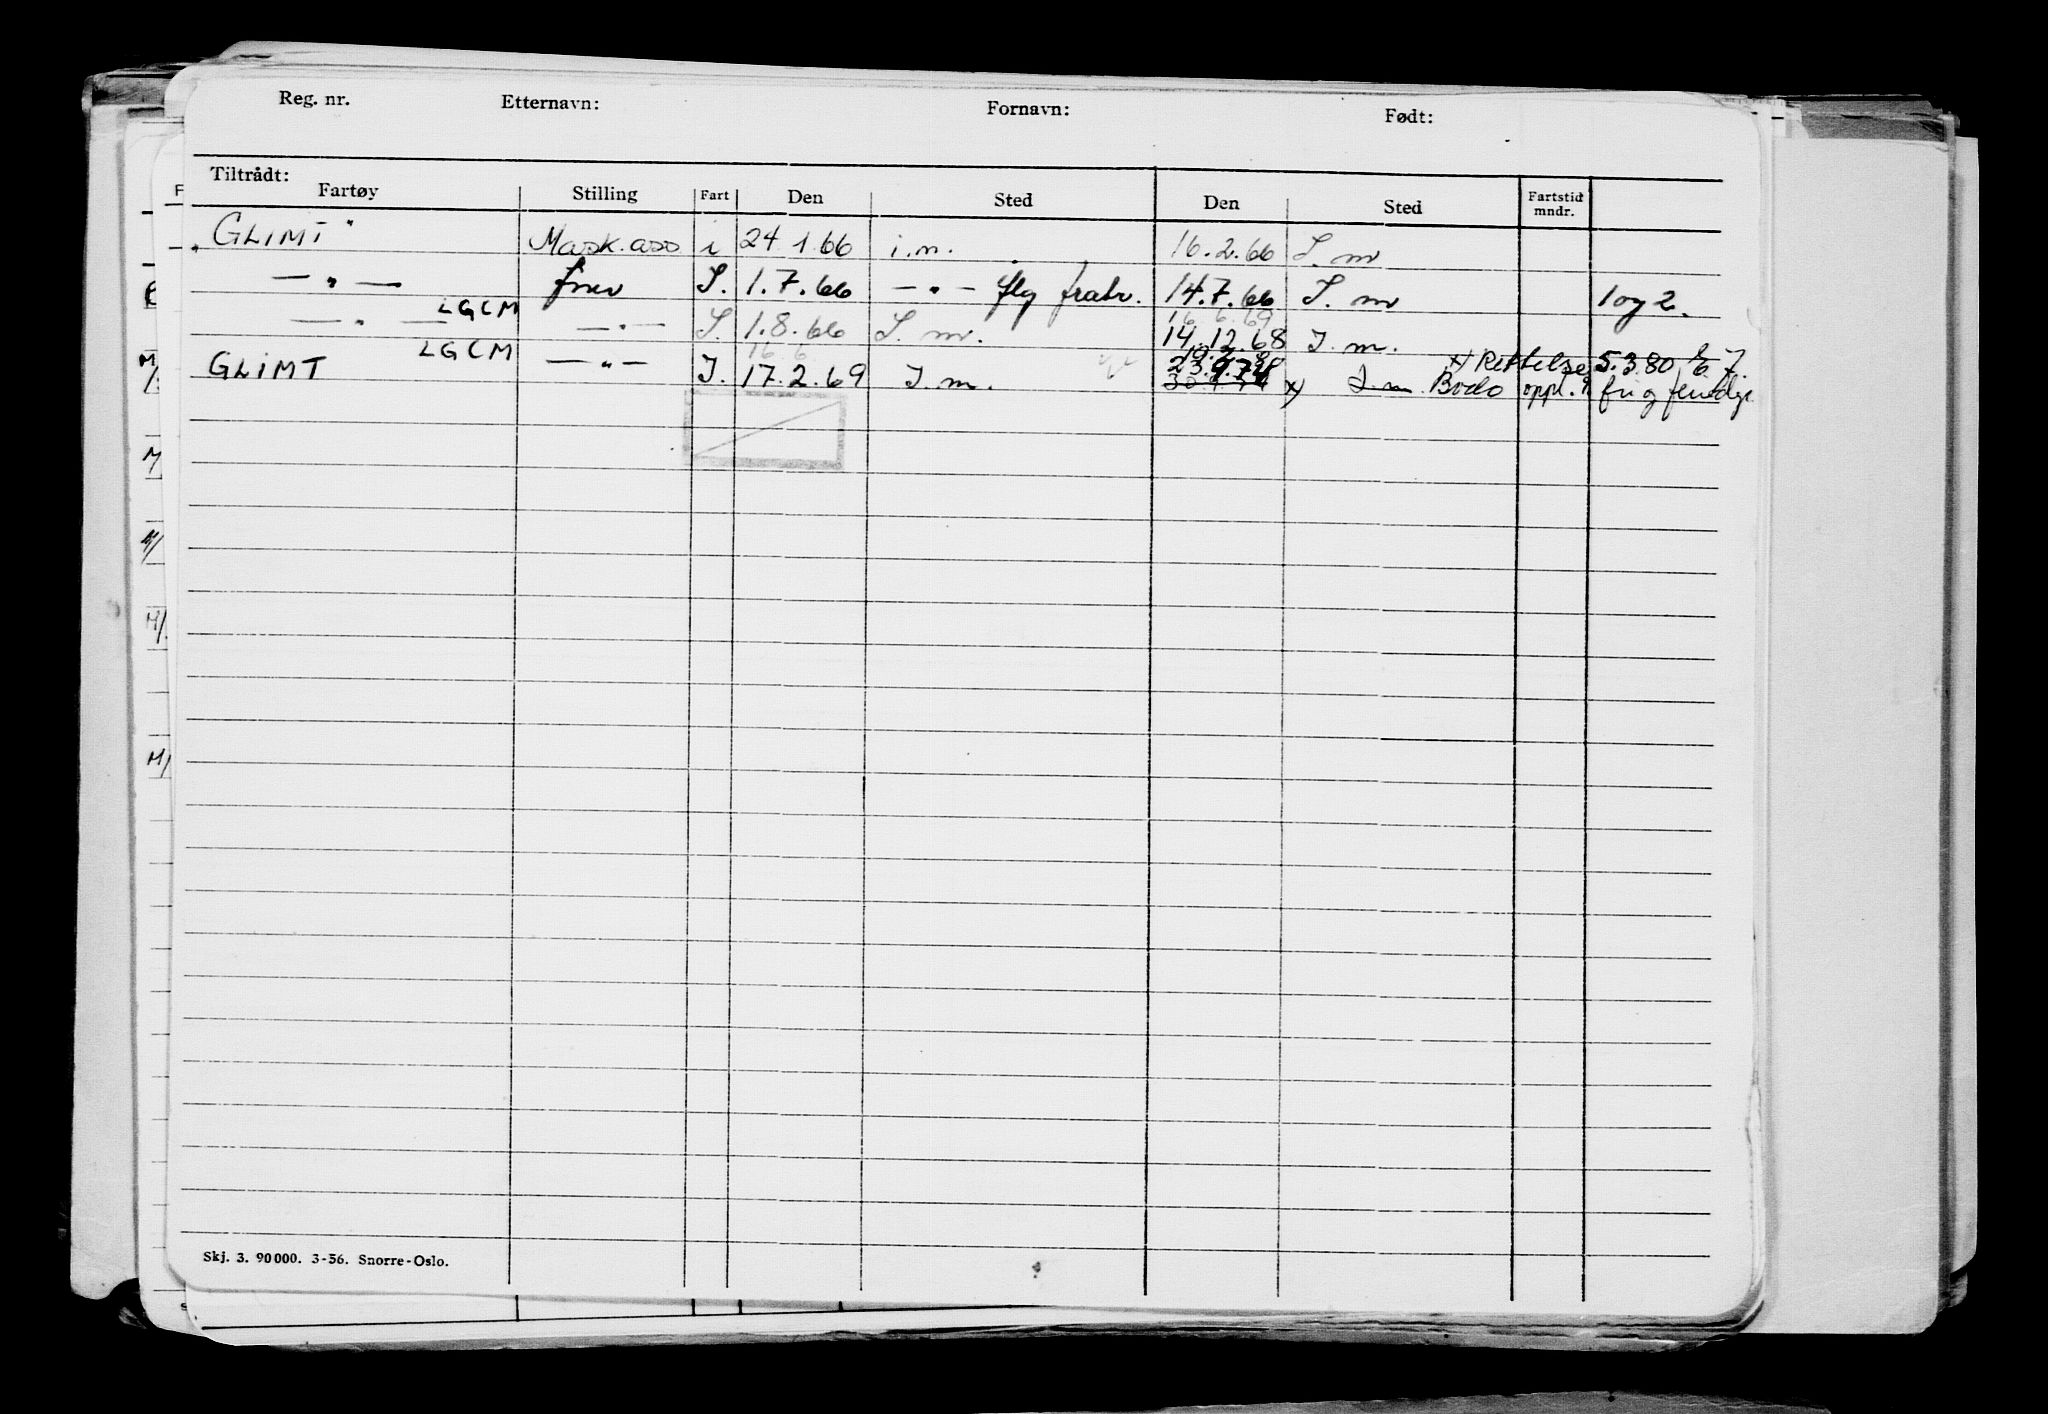 Reg. nr. Etternavn: Fornavn: Født:
Tiltrådt:
Fartøy Stilling Fart Den Sted Den Sted Fartstid mndr.
"GLIMT" Mask.ass i 24.1.66 i.m. 16.2.66 I. m
— " — I. 1.7.66 — " — flg fratr. 14.7.66 I. m 1 og 2.
— " — LGCM — " — I. 1.8.66 I. m. 16.6.69 14.12.68 I. m.
GLIMT LGCM — " — I. 16.6 17.2.69 I. m. x) Rettelse 5.3.80
x) I.m. Bodø
Skj. 3. 90 000. 3-56. Snorre-Oslo.